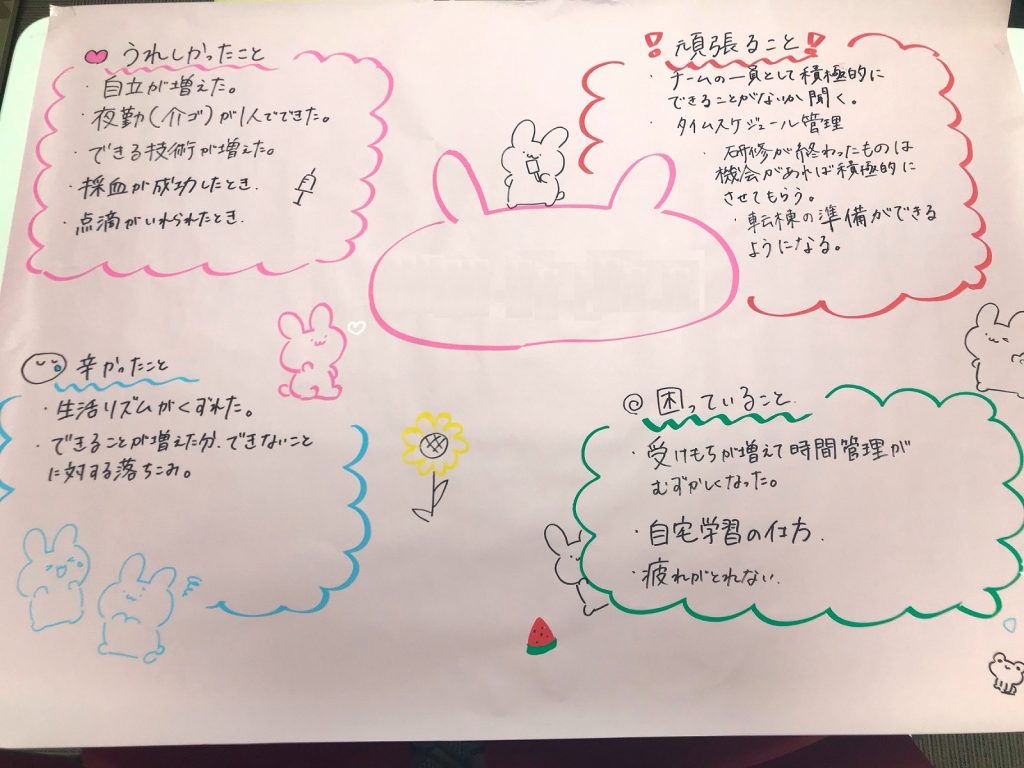 うれしかったこと
・自立が増えた。
・夜勤(介ゴ)が1人でできた。
・できる技術が増えた。
・採血が成功したとき.
・点滴がいれられたとき.
頑張ること
・チームの一員として積極的に
できることがないか聞く。
・タイムスケジュール管理
・研修が終わったものは
機会があれば積極的に
させてもらう。
・転棟の準備ができる
ようになる。
辛かったこと
・生活リズムがくずれた。
・できることが増えた分、できないこと
に対する落ちこみ。
困っていること.
・受けもちが増えて時間管理が
むずかしくなった。
・自宅学習の仕方.
・疲れがとれない.